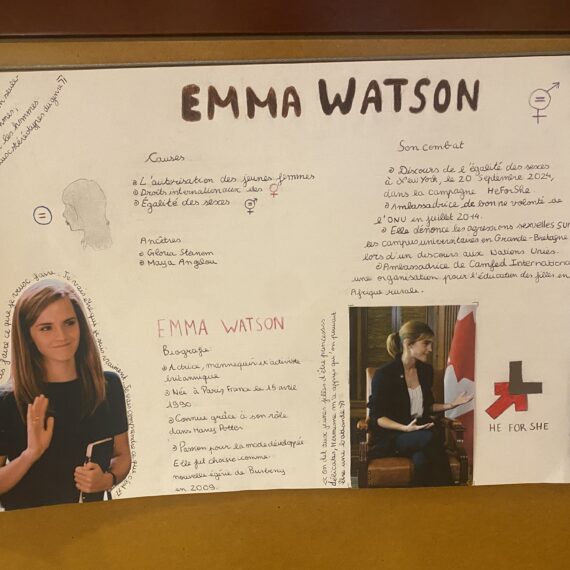 EMMA WATSON
les hommes
Causes
L'autorisation des jeunes femmes
Droits internationaux des ♀
Égalité des sexes
=
Ancêtres
Gloria Steinem
Maya Angelou
Son combat
Discours de l'égalité des sexes
à New York, le 20 septembre 2024,
dans la campagne HeForShe.
Ambassadrice de bonne volonté de
l'ONU en juillet 2014.
Elle dénonce les agressions sexuelles sur
les campus universitaires en Grande-Bretagne
lors d'un discours aux Nations Unies.
Ambassadrice de Camfed International
une organisation pour l'éducation des filles en
Afrique rurale.
EMMA WATSON
Biografie:
Actrice, mannequin et activiste
britannique
Née à Paris France le 15 avril
1990.
Connue grâce à son rôle
dans Harry Potter
Passion pour la mode développée
Elle fut choisie comme
nouvelle égérie de Burberry
en 2009.
<< on dit aux jeunes filles d'être princesses
délicates, Hermione m'a appris qu'on pouvait
être une battante >>
HE FOR SHE